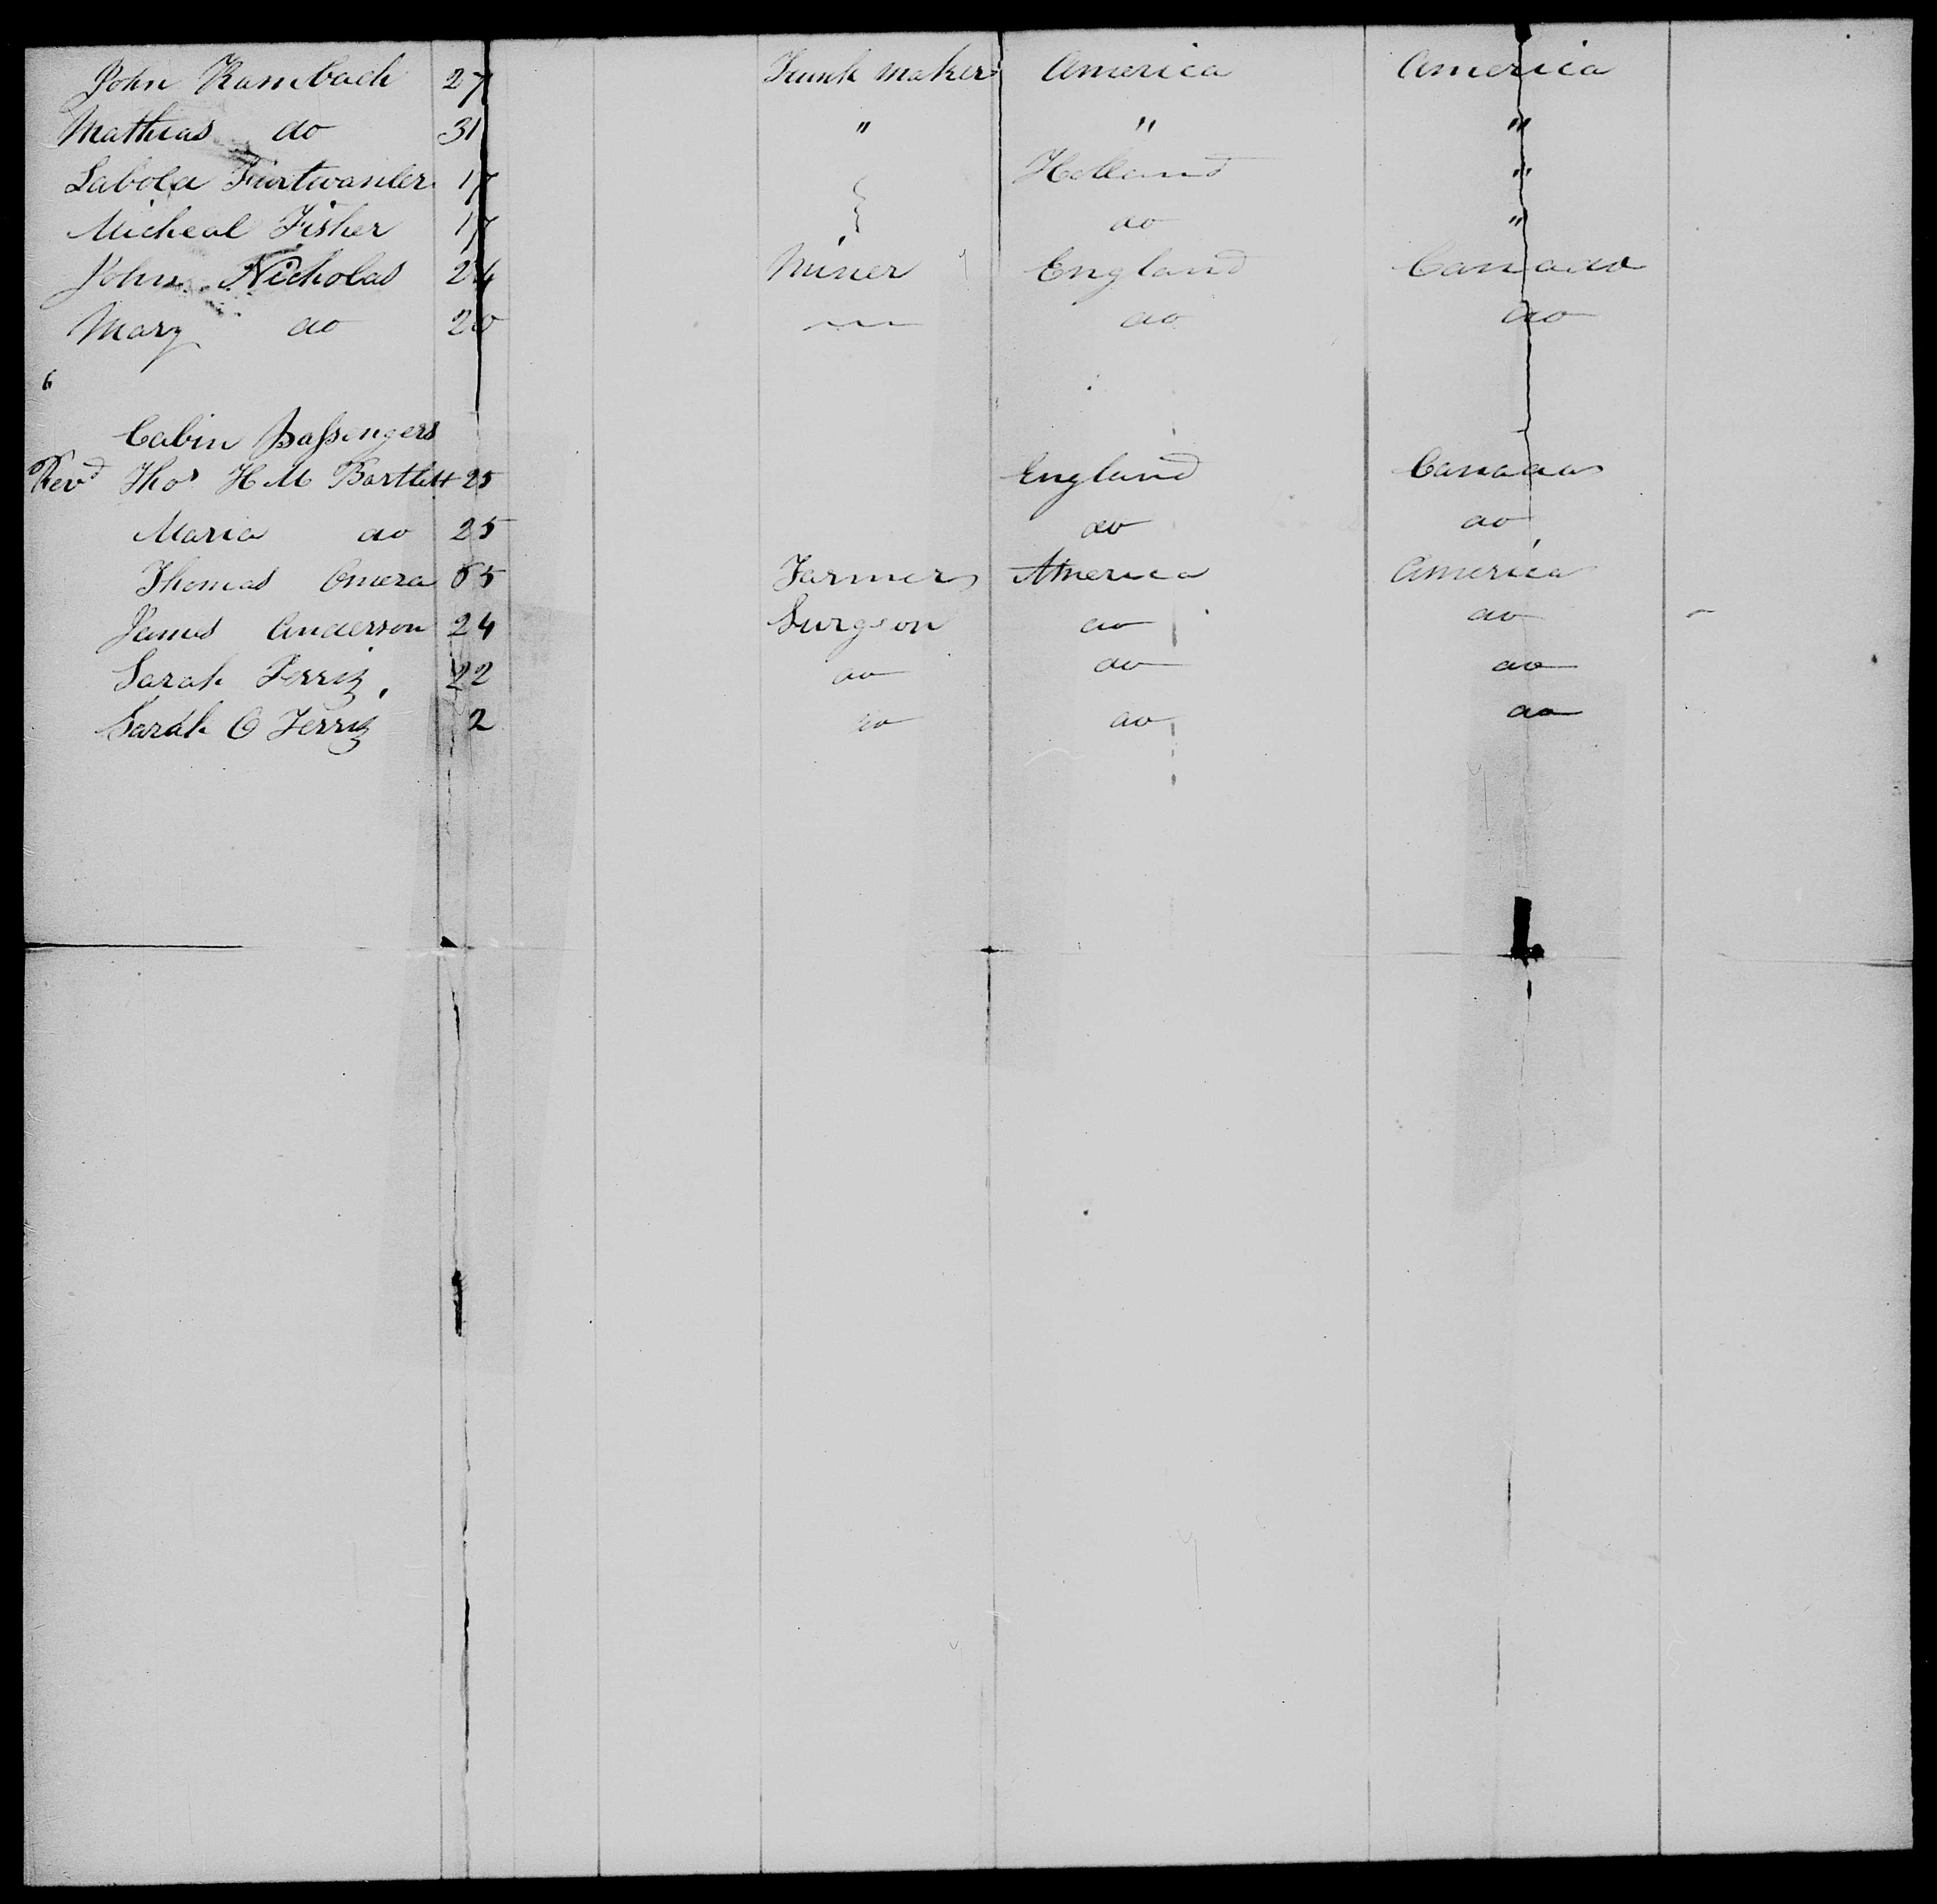 John Rambach 27 Trunk maker America America
Mathias do 31 " " "
Labola Furtwanler 17 Holland "
Micheal Fisher 17 do "
John Nicholas 24 Miner England Canada
Mary do 20 do do
6
Cabin Passengers
Revd Thos H M Bartlett 25 England Canada
Maria do 25 do do
Thomas Omera 65 Farmer America America
James Anderson 24 Surgeon do do
Sarah Ferriz 22 do do do
Sarah O Ferriz 2 do do do